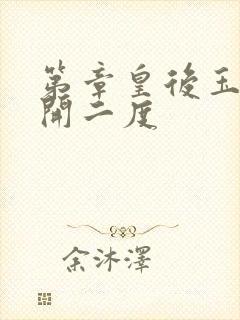 第章皇後玉
開二度
余沐澤